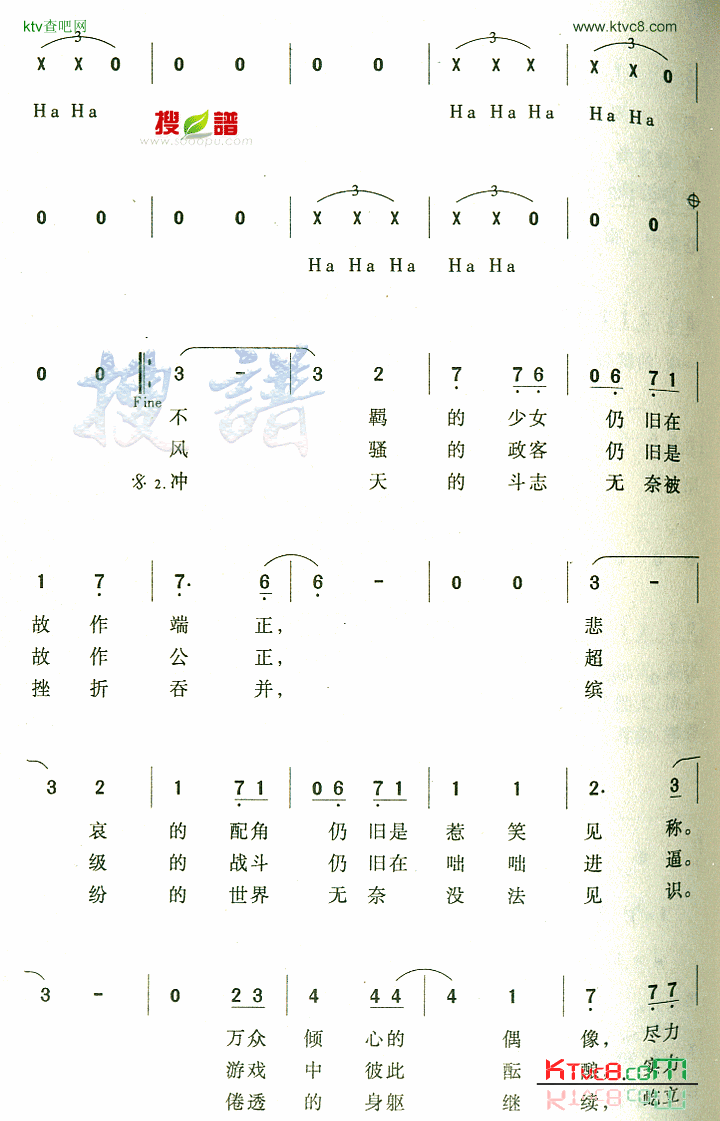 ktv查吧网 www.ktvc8.com
3 3 3
X X 0 | 0 0 | 0 0 | X X X | X X 0 |
Ha Ha Ha Ha Ha Ha Ha
搜谱
www.sooopu.com
3 3
0 0 | 0 0 | X X X | X X 0 | 0 0 |
Ha Ha Ha Ha Ha
搜譜
0 0 3 - | 3 2 | 7 7 6 | 0 6 7 1 |
Fine
不 羁 的 少女 仍 旧在
风 骚 的 政客 仍 旧是
2.冲 天 的 斗志 无 奈被
1 7 | 7· 6 | 6 - | 0 0 | 3 - |
故 作 端 正, 悲
故 作 公 正, 超
挫 折 吞 并, 缤
3 2 | 1 7 1 | 0 6 7 1 | 1 1 | 2· 3 |
哀 的 配角 仍 旧是 惹 笑 见 称。
级 的 战斗 仍 旧在 咄 咄 进 逼。
纷 的 世界 无 奈 没 法 见 识。
3 - | 0 2 3 | 4 4 4 | 4 1 | 7 7 7 |
万众 倾 心的 偶 像, 尽力
游戏 中 彼此 酝
倦透 的 身躯 继 续, 屹立
KTVC8.com